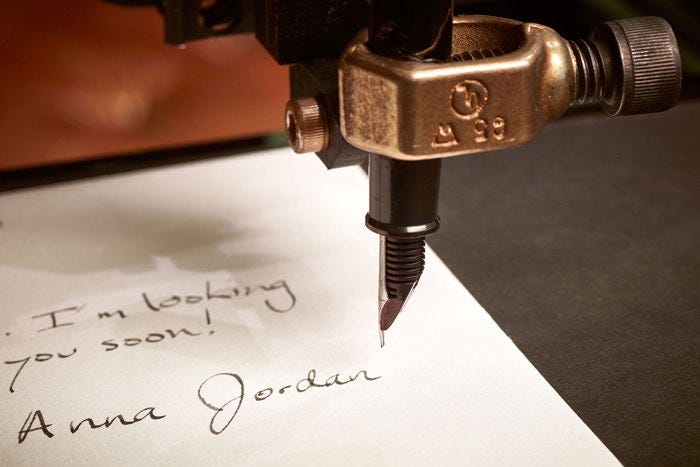 . I'm looking
you soon!
Anna Jordan